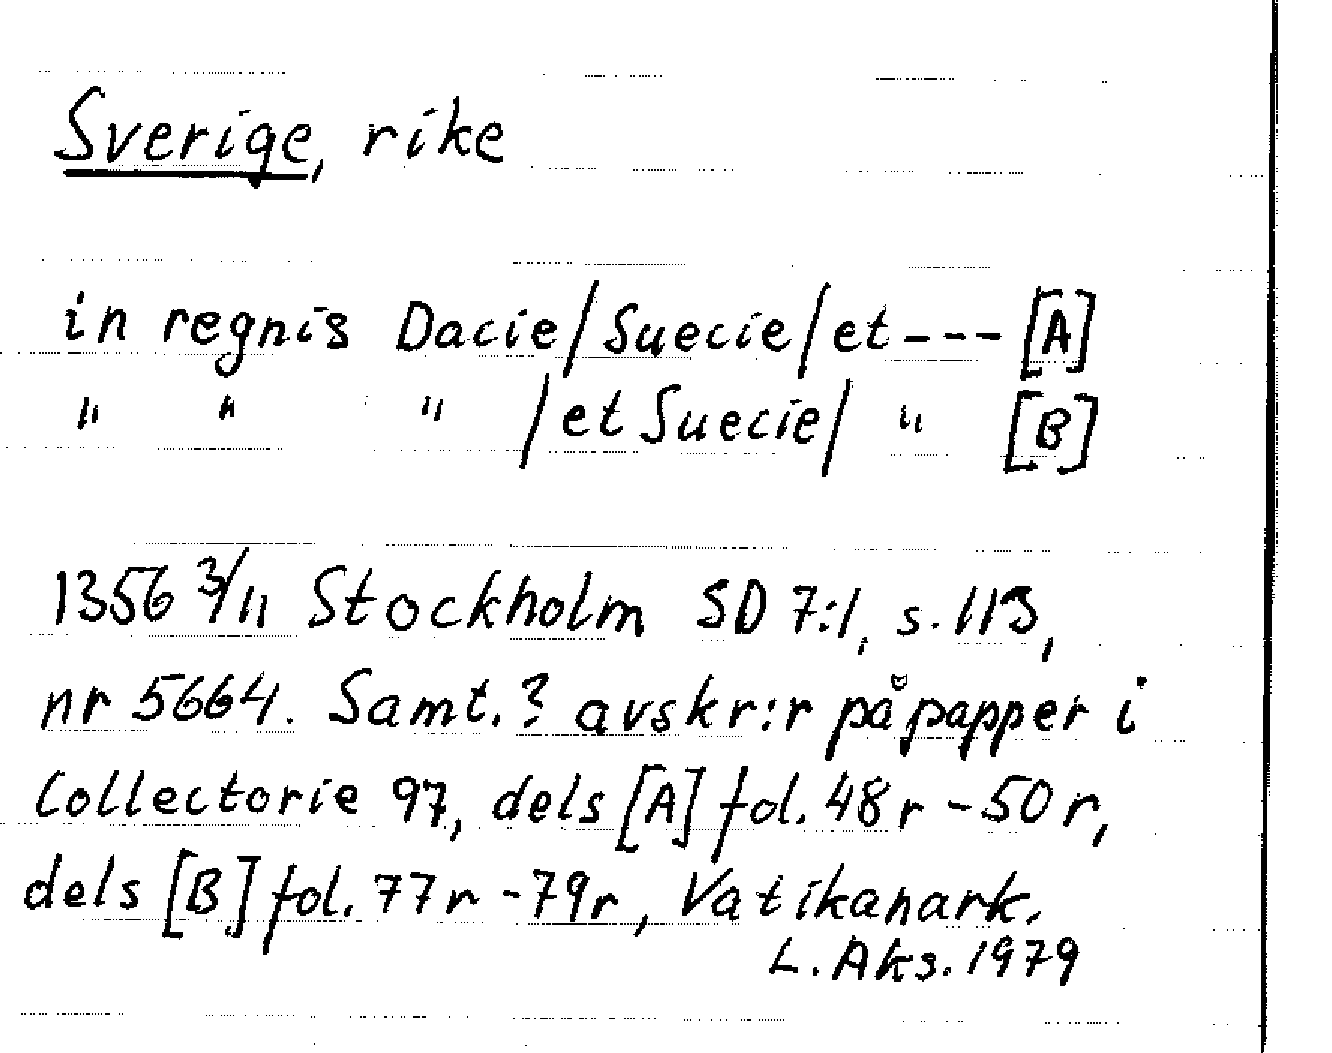 Sverige, rike
in regnis Dacie/Suecie/et --- [A]
" " " /et Suecie/ " [B]
1356 3/11 Stockholm SD 7:1, s. 113,
nr 5664. Samt.? avskr:r på papper i
Collectorie 97, dels [A] fol. 48r-50r,
dels [B] fol. 77r-79r, Vatikanark.
L. Aks. 1979